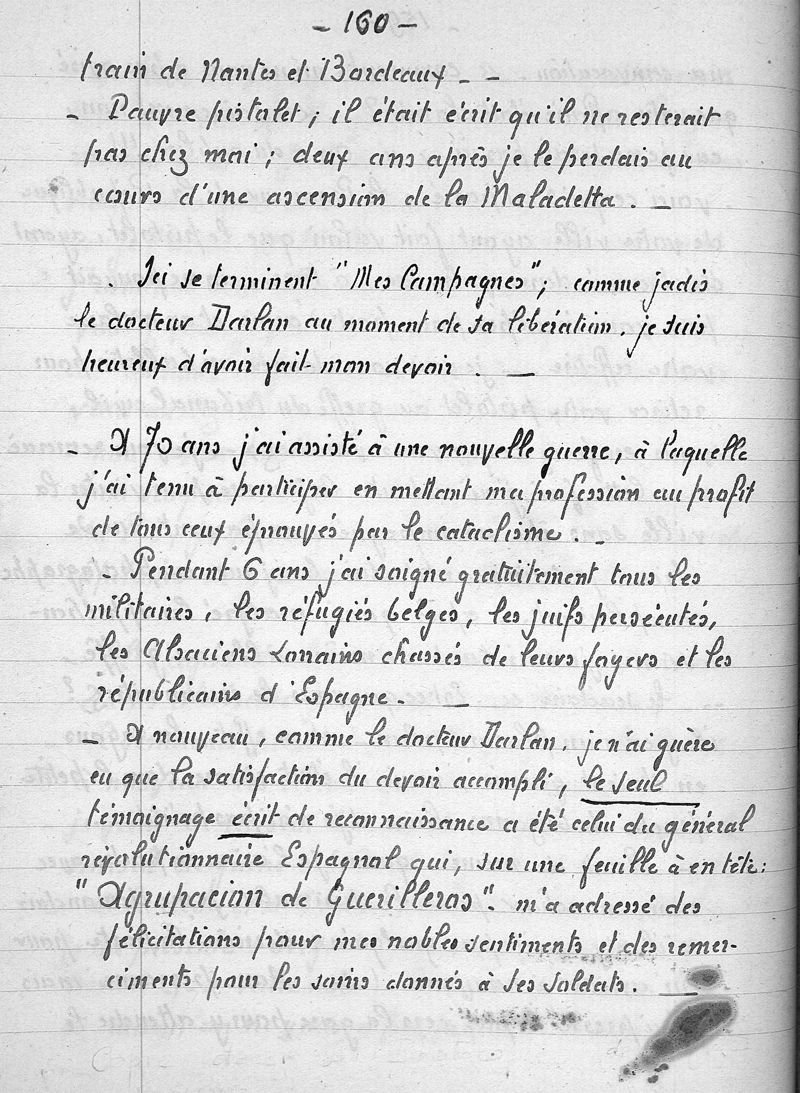 - 160 -
train de Nantes et Bordeaux - -
- Pauvre pistolet ; il était écrit qu'il ne resterait
pas chez moi ; deux ans après je le perdais au
cours d'une ascension de la Maladetta. -
. Ici se terminent "Mes Campagnes" ; comme jadis
le docteur Darlan au moment de sa libération. je suis
heureux d'avoir fait mon devoir. -
- A 70 ans j'ai assisté à une nouvelle guerre, à laquelle
j'ai tenu à participer en mettant ma profession au profit
de tous ceux éprouvés par le cataclisme. -
- Pendant 6 ans j'ai soigné gratuitement tous les
militaires, les réfugiés belges, les juifs persécutés,
les Alsaciens Lorrains chassés de leurs foyers et les
républicains d'Espagne. -
- A nouveau, comme le docteur Darlan. je n'ai guère
eu que la satisfaction du devoir accompli, le seul
témoignage écrit de reconnaissance a été celui du général
révolutionnaire Espagnol qui, sur une feuille à en tête :
"Agrupacion de Guerilleros". m'a adressé des
félicitations pour mes nobles sentiments et des remer-
ciments pour les soins donnés à ses soldats. -